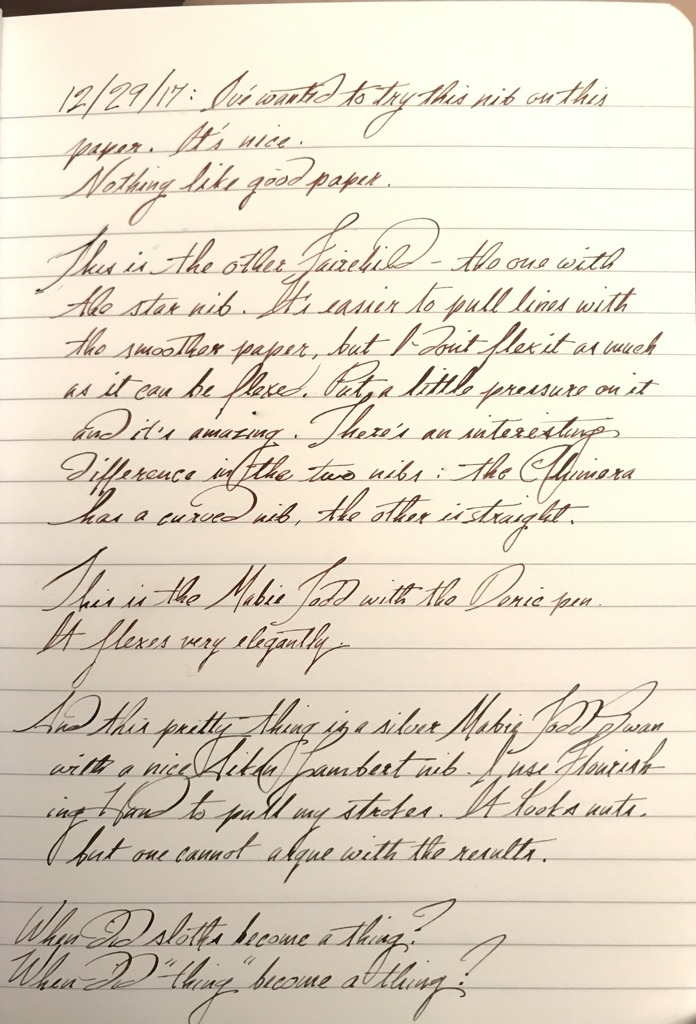 12/29/17: I've wanted to try this nib on this
paper. It's nice.
Nothing like good paper.
This is the other Fairchild - the one with
the star nib. It's easier to pull lines with
the smoother paper, but I don't flex it as much
as it can be flexed. Put a little pressure on it
and it's amazing. There's an interesting
difference in the two nibs: the Chimera
has a curved nib, the other is straight.
This is the Mabie Todd with the Doric pen.
It flexes very elegantly.
And this pretty thing is a silver Mabie Todd Swan
with a nice Aikin Lambert nib. I use Flourish
ing Hand to pull my strokes. It looks nuts,
but one cannot argue with the results.
When did sloths become a thing?
When did "thing" become a thing?